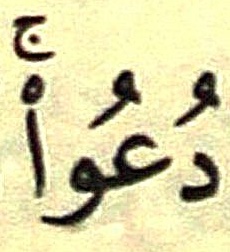 دُعُوا۟ۚ